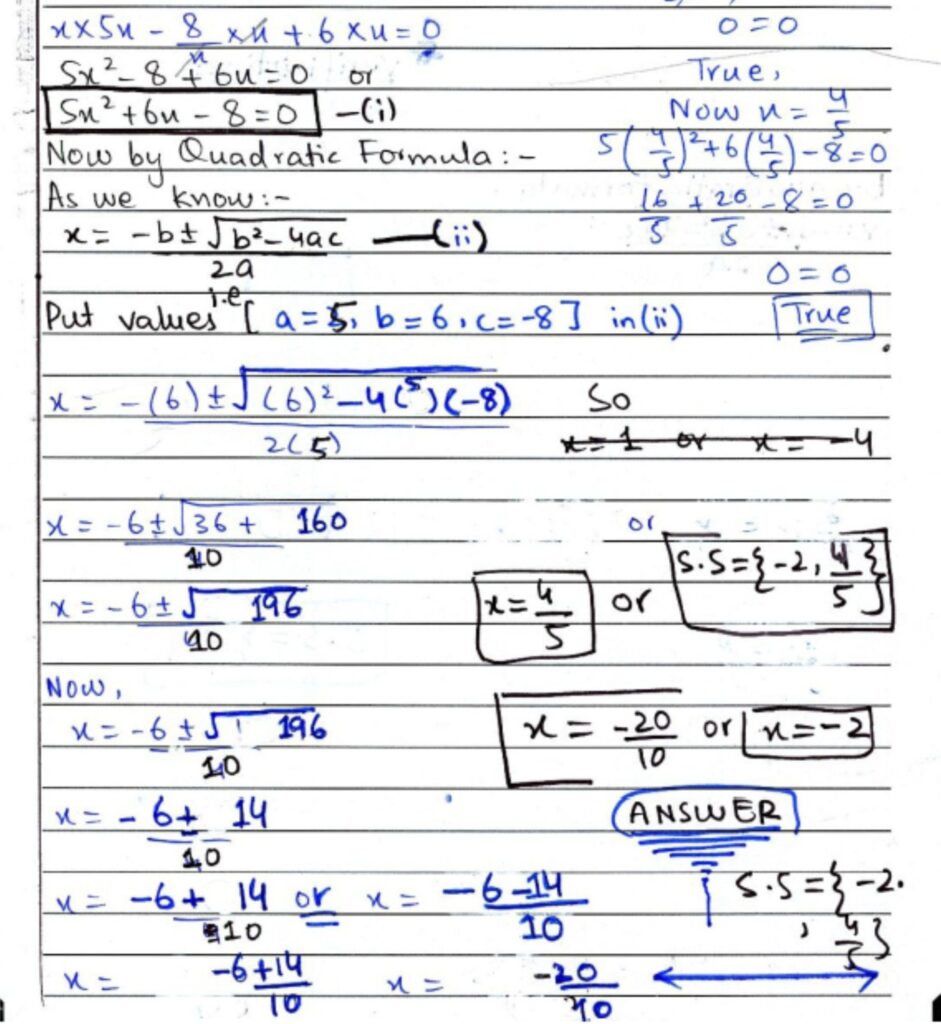 x×5x - 8/x ×x + 6×x = 0
5x² - 8 + 6x = 0 or
5x² + 6x - 8 = 0 —(i)
Now by Quadratic Formula :-
As we know :-
x = -b ± √b² - 4ac / 2a —(ii)
Put values i.e [ a = 5, b = 6, c = -8 ] in (ii)
x = -(6) ± √(6)² - 4(5)(-8) / 2(5)
x = -6 ± √36 + 160 / 10
x = -6 ± √196 / 10
Now,
x = -6 ± √196 / 10
x = -6 ± 14 / 10
x = -6 + 14 / 10 or x = -6 - 14 / 10
x = -6 + 14 / 10 x = -20 / 10
0 = 0
True,
Now x = 4/5
5(4/5)² + 6(4/5) - 8 = 0
16/5 + 20/5 - 8 = 0
0 = 0
True
So
x = 1 or x = -4
or
x = 4/5 or S.S = {-2, 4/5}
x = -20/10 or x = -2
ANSWER
S.S = {-2.
, 4/5}